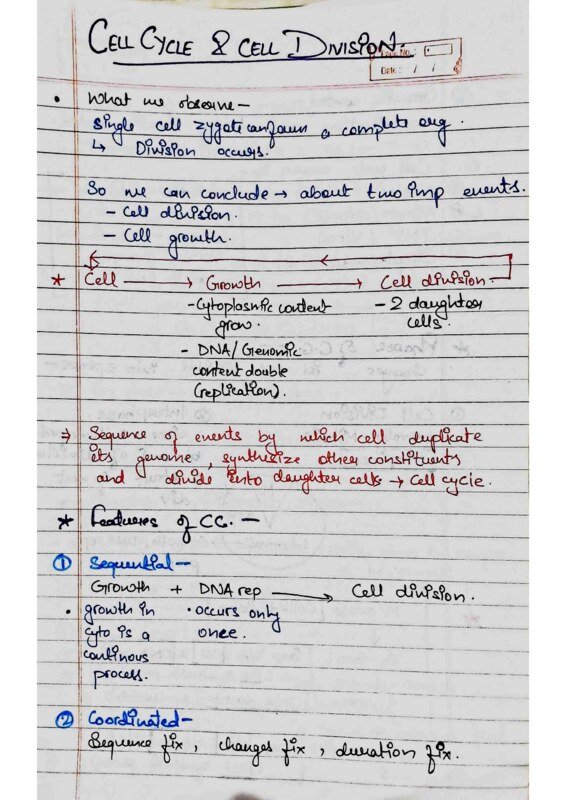 CELL CYCLE & CELL DIVISION.
Page No.:
Date: / /
• What we observe –
Single cell zygote can form a complete org.
↳ Division occurs.
So we can conclude → about two imp events.
– Cell division.
– Cell growth.
* Cell → Growth → Cell division.
- Cytoplasmic content grow.
- 2 daughter cells.
- DNA/Genomic content double (replication).
⇒ Sequence of events by which cell duplicate
its genome, synthesize other constituents
and divide into daughter cells → Cell cycle.
* Features of CC. –
① Sequential –
Growth + DNA rep → Cell division.
• growth in cyto is a continous process.
• occurs only once.
② Coordinated –
Sequence fix, changes fix, duration fix.